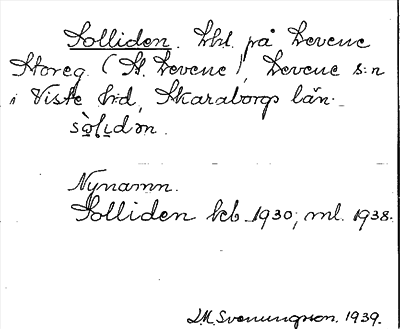 Solliden. Lht. på Levene
Storeg. (St. Levene), Levene s:n
i Viste h:d, Skaraborgs län.
Nynamn.
Solliden kb. 1930; ml. 1938.
S.M. Svenungsson. 1939.